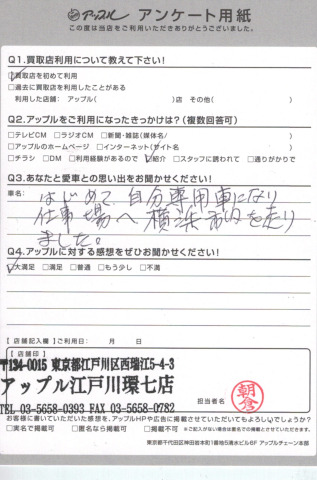 アップル アンケート用紙
この度は当店をご利用いただきありがとうございました。
Q1.買取店利用について教えて下さい!
☑買取店を初めて利用
□過去に買取店を利用したことがある
利用した店舗: アップル( )店 その他( )
Q2.アップルをご利用になったきっかけは?(複数回答可)
□テレビCM □ラジオCM □新聞・雑誌(媒体名/ )
□アップルのホームページ □インターネット(サイト名 )
□チラシ □DM □利用経験があるので ☑紹介 □スタッフに誘われて □通りがかりで
Q3.あなたと愛車との思い出をお聞かせください!
車名:
はじめて自分専用車になり
仕事場へ横浜市内を走り
ました。
Q4.アップルに対する感想をぜひお聞かせください!
☑大満足 □満足 □普通 □もう少し □不満
【店舗記入欄】ご利用日: 月 日
【店舗印】
〒134-0015 東京都江戸川区西瑞江5-4-3
アップル江戸川環七店
TEL 03-5658-0393 FAX 03-5658-0782
担当者名
朝倉
お客様に書いていただいた感想を、アップルHPや広告に掲載させていただいてもよろしいでしょうか?
□実名で掲載可 □匿名なら掲載可 □掲載不可 ※ご記入がない場合は匿名での掲載とさせていただきます。
東京都千代田区神田岩本町1番地5清水ビル6F アップルチェーン本部